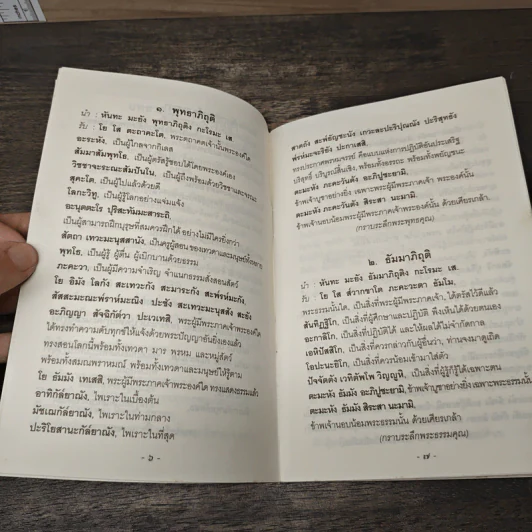 ๑. พุทธาภิถุติ
นำ : หันทะ มะยัง พุทธาภิถุติง กะโรมะ เส
รับ : โย โส ตะถาคะโต, พระตถาคตเจ้านั้นพระองค์ใด
อะระหัง, เป็นผู้ไกลจากกิเลส
สัมมาสัมพุทโธ, เป็นผู้ตรัสรู้ชอบได้โดยพระองค์เอง
วิชชาจะระณะสัมปันโน, เป็นผู้ถึงพร้อมด้วยวิชชาและจรณะ
สุคะโต, เป็นผู้ไปแล้วด้วยดี
โลกะวิทู, เป็นผู้รู้โลกอย่างแจ่มแจ้ง
อะนุตตะโร ปุริสะทัมมะสาระถิ,
เป็นผู้สามารถฝึกบุรุษที่สมควรฝึกได้ อย่างไม่มีใครยิ่งกว่า
สัตถา เทวะมะนุสสานัง, เป็นครูผู้สอนของเทวดาและมนุษย์ทั้งหลาย
พุทโธ, เป็นผู้รู้ ผู้ตื่น ผู้เบิกบานด้วยธรรม
ภะคะวา, เป็นผู้มีความจำเริญ จำแนกธรรมสั่งสอนสัตว์
โย อิมัง โลกัง สะเทวะกัง สะมาระกัง สะพ๎รห๎มะกัง,
สัสสะมะณะพ๎ราห๎มะณิง ปะชัง สะเทวะมะนุสสัง สะยัง
อะภิญญา สัจฉิกัต๎วา ปะเวเทสิ, พระผู้มีพระภาคเจ้าพระองค์ใด
ได้ทรงทำความดับทุกข์ให้แจ้งด้วยพระปัญญาอันยิ่งเองแล้ว
ทรงสอนโลกนี้พร้อมทั้งเทวดา มาร พรหม และหมู่สัตว์
พร้อมทั้งสมณพราหมณ์ พร้อมทั้งเทวดาและมนุษย์ให้รู้ตาม
โย ธัมมัง เทเสสิ, พระผู้มีพระภาคเจ้า พระองค์ใด ทรงแสดงธรรมแล้ว
อาทิกัล๎ยาณัง, ไพเราะในเบื้องต้น
มัชเฌกัล๎ยาณัง, ไพเราะในท่ามกลาง
ปะริโยสานะกัล๎ยาณัง, ไพเราะในที่สุด
- ๖ -
สาตถัง สะพ๎ยัญชะนัง เกวะละปะริปุณณัง ปะริสุทธัง
พ๎รห๎มะจะริยัง ปะกาเสสิ,
ทรงประกาศพรหมจรรย์ คือแบบแห่งการปฏิบัติอันประเสริฐ
บริสุทธิ์ บริบูรณ์สิ้นเชิง, พร้อมทั้งอรรถะ พร้อมทั้งพยัญชนะ
ตะมะหัง ภะคะวันตัง อะภิปูชะยามิ,
ข้าพเจ้าบูชาอย่างยิ่ง เฉพาะพระผู้มีพระภาคเจ้า พระองค์นั้น
ตะมะหัง ภะคะวันตัง สิระสา นะมามิ,
ข้าพเจ้านอบน้อมพระผู้มีพระภาคเจ้าพระองค์นั้น ด้วยเศียรเกล้า
(กราบระลึกพระพุทธคุณ)
๒. ธัมมาภิถุติ
นำ : หันทะ มะยัง ธัมมาภิถุติง กะโรมะ เส.
รับ : โย โส ส๎วากขาโต ภะคะวะตา ธัมโม,
พระธรรมนั้นใด, เป็นสิ่งที่พระผู้มีพระภาคเจ้า, ได้ตรัสไว้ดีแล้ว
สันทิฏฐิโก, เป็นสิ่งที่ผู้ศึกษาและปฏิบัติ พึงเห็นได้ด้วยตนเอง
อะกาลิโก, เป็นสิ่งที่ปฏิบัติได้ และให้ผลได้ไม่จำกัดกาล
เอหิปัสสิโก, เป็นสิ่งที่ควรกล่าวกับผู้อื่นว่า, ท่านจงมาดูเถิด
โอปะนะยิโก, เป็นสิ่งที่ควรน้อมเข้ามาใส่ตัว
ปัจจัตตัง เวทิตัพโพ วิญญูหิ, เป็นสิ่งที่ผู้รู้ก็รู้ได้เฉพาะตน
ตะมะหัง ธัมมัง อะภิปูชะยามิ, ข้าพเจ้าบูชาอย่างยิ่ง เฉพาะพระธรรมนั้น
ตะมะหัง ธัมมัง สิระสา นะมามิ,
ข้าพเจ้านอบน้อมพระธรรมนั้น ด้วยเศียรเกล้า
(กราบระลึกพระธรรมคุณ)
- ๗ -